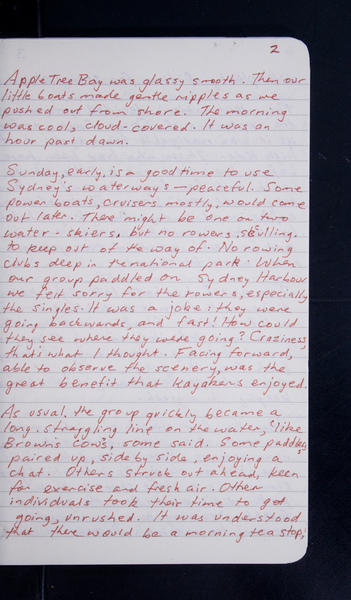 2
Apple Tree Bay was glassy smooth. Then our
little boats made gentle ripples as we
pushed out from shore. The morning
was cool, cloud-covered. It was an
hour past dawn.
Sunday, early, is a good time to use
Sydney's waterways — peaceful. Some
power boats, cruisers mostly, would come
out later. There might be one or two
water-skiers, but no rowers, skulling.
to keep out of the way of. No rowing
clubs deep in the national park. When
our group paddled on Sydney Harbour
we felt sorry for the rowers, especially
the singles. It was a joke: they were
going backwards, and fast! How could
they see where they were going? Craziness,
that's what I thought. Facing forward,
able to observe the scenery, was the
great benefit that kayakers enjoyed.
As usual, the group quickly became a
long straggling line on the water, 'like
Brown's cows', some said. Some paddlers
paired up, side by side, enjoying a
chat. Others struck out ahead, keen
for exercise and fresh air. Other
individuals took their time to get
going, unrushed. It was understood
that there would be a morning tea stop,